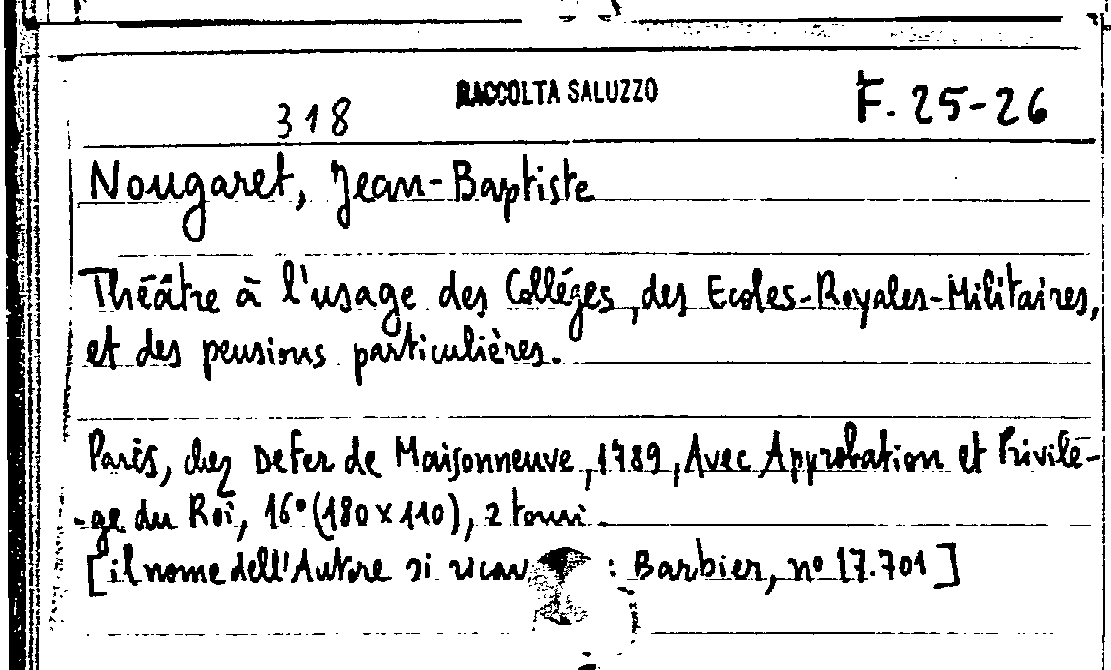 RACCOLTA SALUZZO
318
F. 25-26
Nougaret, Jean-Baptiste
Théâtre à l'usage des Colléges, des Ecoles-Royales-Militaires,
et des pensions particulières.
Paris, chez Defer de Maisonneuve, 1789, Avec Approbation et Privilè-
-ge du Roi, 16° (180 x 110), 2 tomi.
[il nome dell'Autore si : Barbier, n° 17.701]